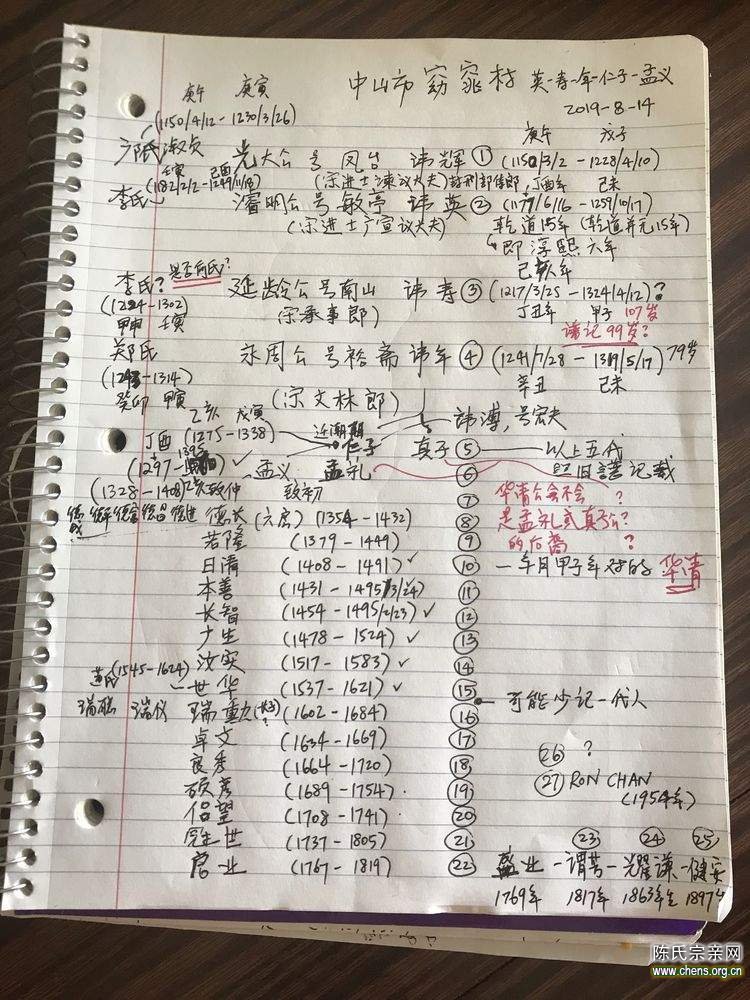 中山市窈窕村 英-寿-年-仁子-孟义
2019-8-14
庚午 庚寅
(1150/4/12-1230/3/26)
庚午 戊子
氏淑贞 光大公号凤台 讳辉① (1150/3/2-1228/4/10)
壬寅 己酉
(宋进士谏议大夫)
丁酉年 己未
李氏 濬明公号敏亭 讳英② (1177/6/16-1259/10/17)
(宋进士广宣议大夫) 乾道15年(乾道并元15年)
即淳熙六年
己亥年
李氏? 是否何氏?
延龄公号南山 讳寿③ (1217/3/25-1324/4/12)?
(1224-1302) (宋承事郎) 丁丑年 甲子 107岁
甲申 壬寅 谱记99岁?
郑氏 永周公号裕斋 讳年④ (1241/7/28-1319/5/17) 79岁
(1243-1314) 辛丑 己未
癸卯 甲寅 (宋文林郎)
乙亥 戊寅
讳溥,号宏夫
丁酉 (1275-1338) 仁子 真子⑤ 以上五代
1395
(1297- ✓ 孟义 孟礼 ⑥ 旧谱记载
(1328-1408) 致仲 致初 ⑦ 华清公会不会?
德成 德平 德宏 德昌 德进 德长(六房) (1354-1432) ⑧ 是孟礼或真子公?
若隆 (1379-1449) ⑨ 的后裔?
日清 (1408-1491) ✓ ⑩ 一年月甲子年对的 华清
本善 (1431-1495/3/24) ⑪
长智 (1454-1495/2/23) ✓ ⑫
少生 (1478-1524) ✓ ⑬
汝实 (1517-1583) ✓ ⑭
(1545-1624)
世华 (1537-1621) ✓ ⑮ 可能少记一代人
瑞聪 瑞仪 瑞勤 (1602-1684) ⑯
卓文 (1634-1669) ⑰
良秀 (1664-1720) ⑱ ㉖ ?
硕彦 (1689-1754) ⑲ ㉗ RON CHAN
(1954年)
侣望 (1708-1741) ⑳
世 (1737-1805) ㉑ ㉓ ㉔ ㉕
启业 (1767-1819) ㉒ 盛业-谓芳-光耀谦-健安
1769年 1817年 1863年生 1897年
陈氏宗亲网
www.chens.org.cn